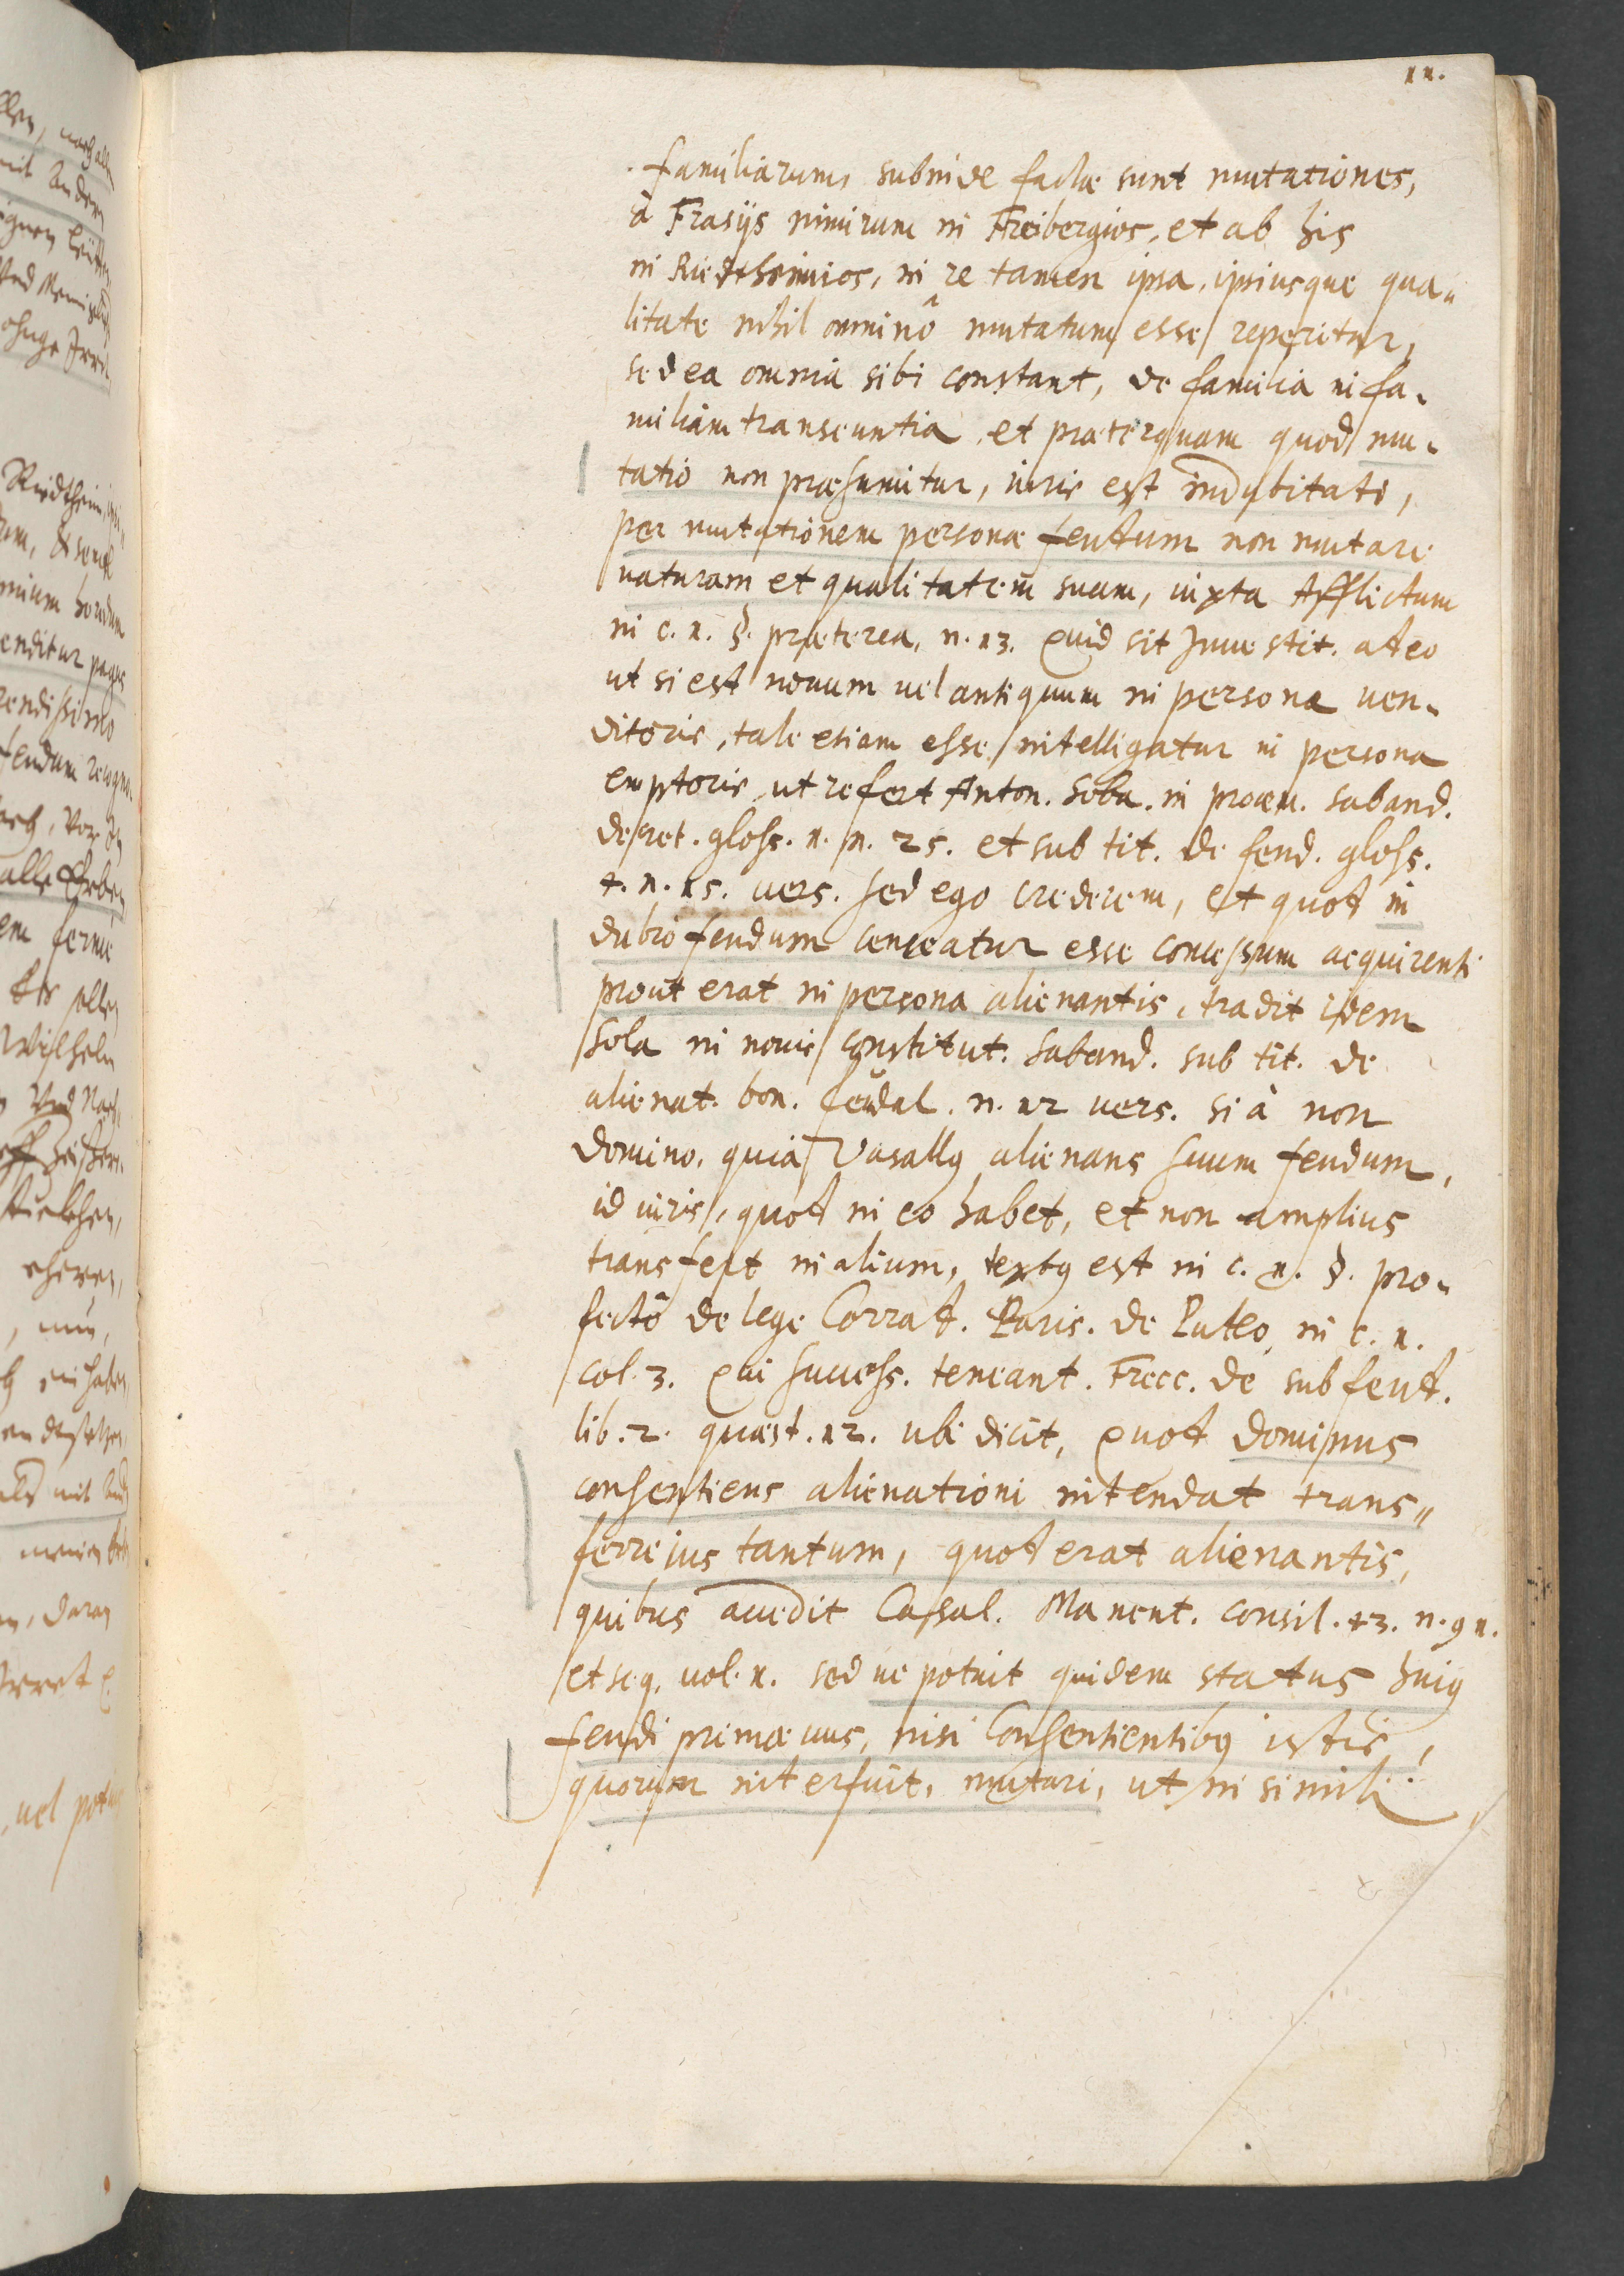 11.
familiarum subinde factæ sunt mutationes,
à Frasijs nimirum in Freibergios, et ab his
in Riedtheimios, in re tamen ipsa, ipsiusque qua„
litate nihil omninô mutatum esse reperitur,
sed ea omnia sibi constant, de familia in fa„
miliam transeuntia, et præterquam quod mu„
tatio non præsumitur, iuris est indubitati,
per mutationem personæ feudum non mutare
naturam et qualitatem suam, iuxta Afflictum
in c. 1. §. præterea, n. 13. Quid sit Inuestit. adeo
ut si est nouum uel antiquum in persona uen„
ditoris, tale etiam esse intelligatur in persona
emptoris, ut refert Anton. Sola. in prooem. Saband.
decret. gloss. 1. n. 25. et sub tit. de feud. gloss.
4. n. 15. uers. sed ego crederem, et quod in
dubio feudum censeatur esse concessum acquirenti
prout erat in persona alienantis, tradit idem
Sola in nouis constitut. Saband. sub tit. de
alienat. bon. feudal. n. 12 uers. si à non
domino. quia Vasallus alienans suum feudum,
id iuris, quod in eo habet, et non amplius
transfert in alium, textus est in c. 1. §. pro„
fectô de lege Corrad. Paris. de Puteo, in c. 1.
col. 3. Qui success. teneant. Frecc. de subfeud.
lib. 2. quæst. 12. ubi dicit, Quod dominus
consentiens alienationi intendat trans„
ferre jus tantum, quod erat alienantis,
quibus accedit Cassal. Manent. consil. 43. n. 91.
et seq. uol. 1. sed ne potuit quidem status huius
feudi primæuus, nisi Consentientibus istis,
quorum interfuit, mutari, ut in simili

nach allen
mit Andern
Riedtheim
enditur pagus
rendissimo
feudum recogno„
alle Erben
em ferme
Wilhelm
Vnd Nach
daran
uel potu